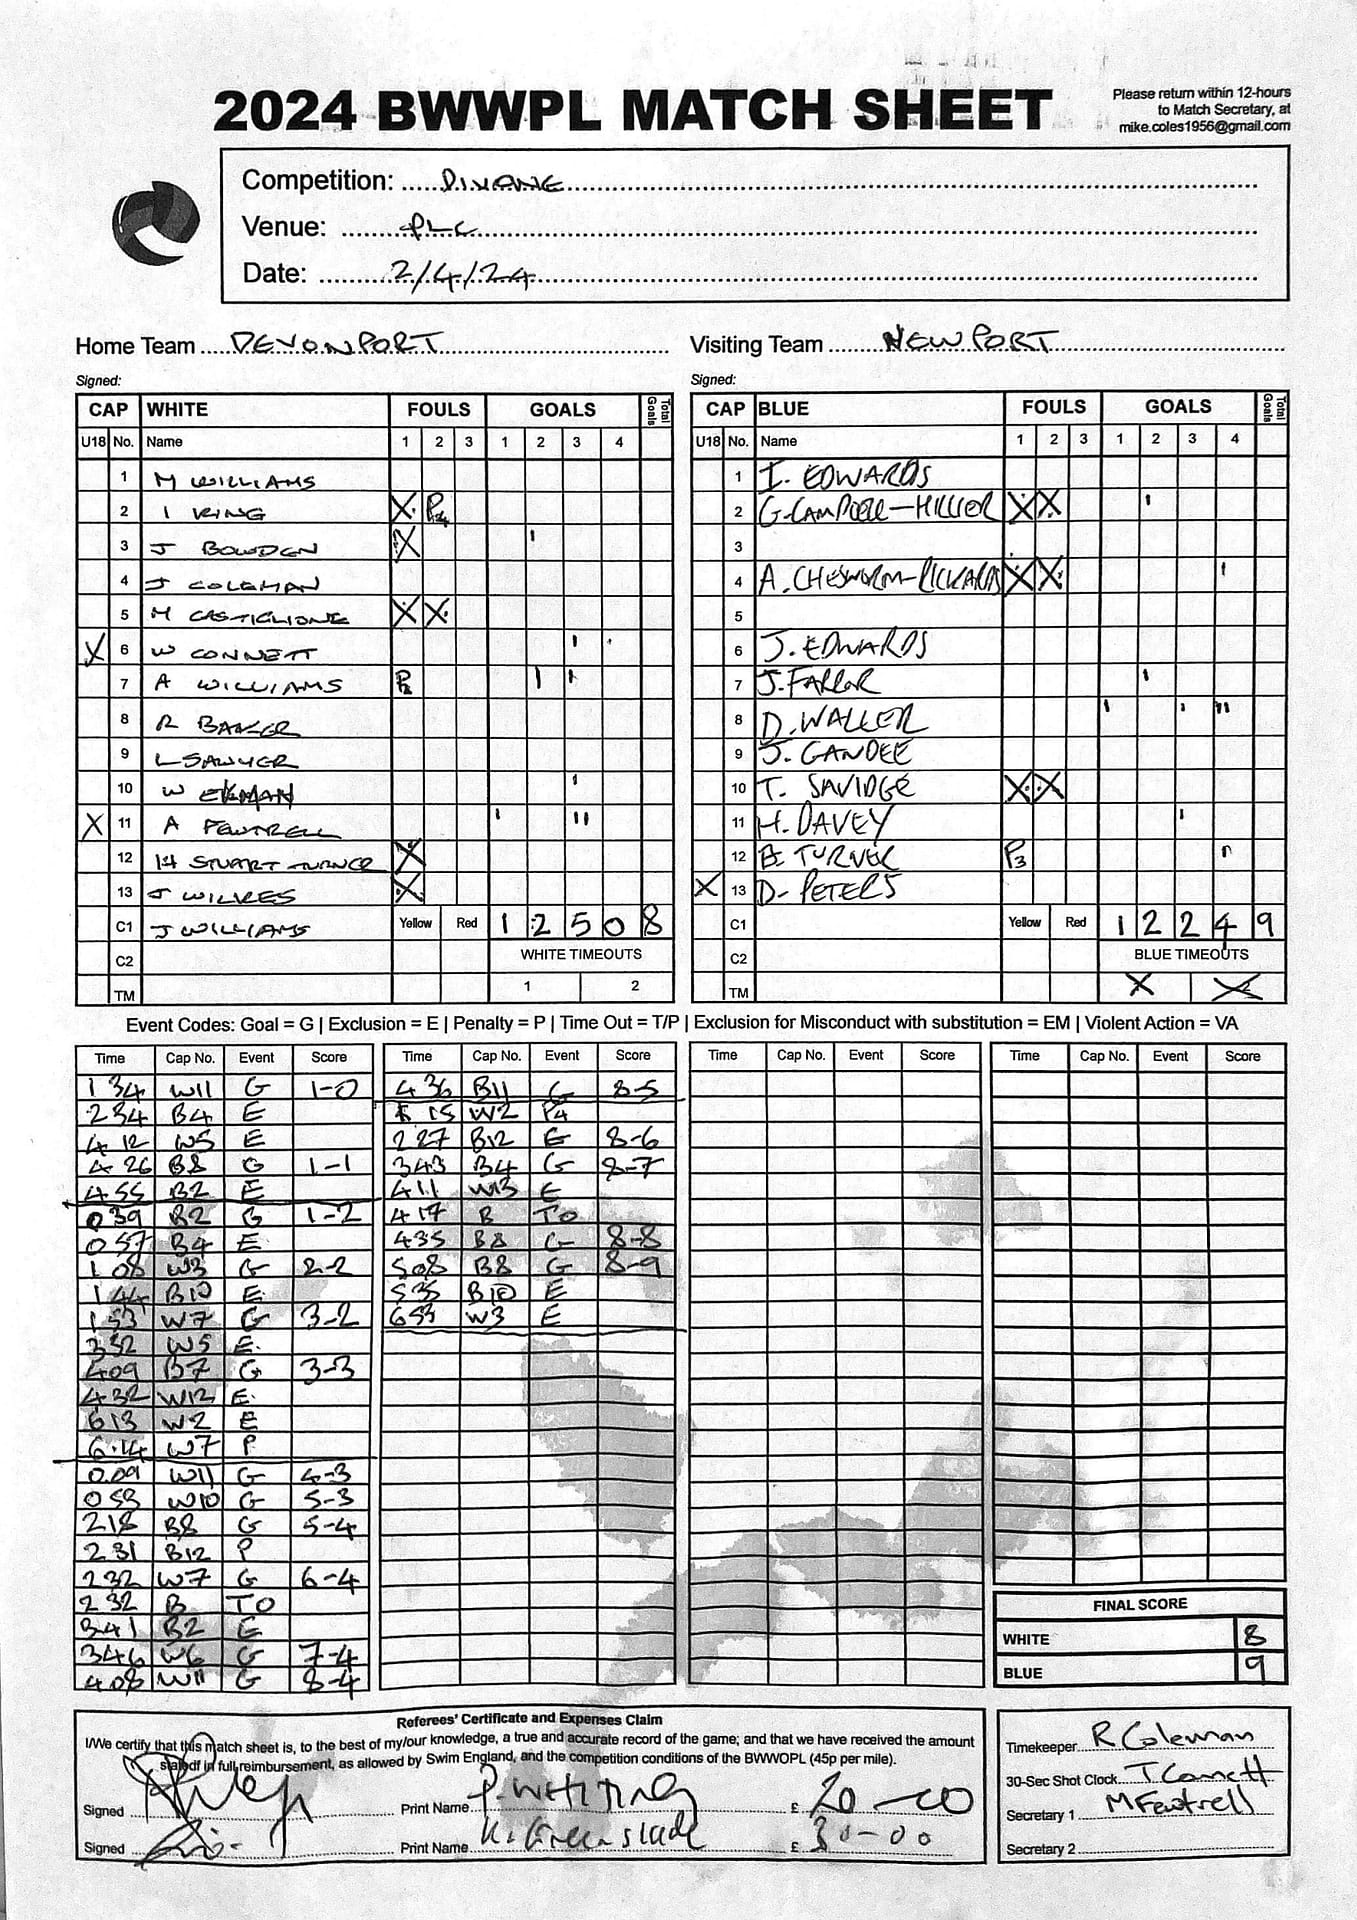 2024 BWWPL MATCH SHEET
Please return within 12-hours
to Match Secretary, at
mike.coles1956@gmail.com
Competition: DIVANE
Venue: PLC
Date: 2/4/24
Home Team DEVONPORT
Visiting Team NEWPORT
Signed:
Signed:
CAP WHITE FOULS GOALS Total Goals
U18 No. Name 1 2 3 1 2 3 4
1 M WILLIAMS
2 I KING X P4
3 J BOWDEN X I
4 J COLEMAN
5 M CASTIGLIONE X X
X 6 W CONNETT I
7 A WILLIAMS P2 I I
8 R BAKER
9 L SAWYER
10 W EKMAN I
X 11 A FEWTRELL I II
12 H STUART-TURNER X
13 J WILKES X
C1 J WILLIAMS Yellow Red 1 2 5 0 8
C2 WHITE TIMEOUTS
TM 1 2
CAP BLUE FOULS GOALS Total Goals
U18 No. Name 1 2 3 1 2 3 4
1 I. EDWARDS
2 G. CAMPBELL-HILLIER X X I
3
4 A. CHESWORTH-RICKARDS X X I
5
6 J. EDWARDS
7 J. FARROR I
8 D. WALLER I I II
9 J. GANDEE
10 T. SAVIDGE X X
11 H. DAVEY I
12 B TURNER P3 I
X 13 D. PETERS
C1 Yellow Red 1 2 2 4 9
C2 BLUE TIMEOUTS
TM X X
Event Codes: Goal = G | Exclusion = E | Penalty = P | Time Out = T/P | Exclusion for Misconduct with substitution = EM | Violent Action = VA
Time Cap No. Event Score
1 34 W11 G 1-0
2 34 B4 E
4 12 W5 E
4 26 B8 G 1-1
4 55 B2 E
0 39 B2 G 1-2
0 57 B4 E
1 08 W3 G 2-2
1 44 B10 E
1 53 W7 G 3-2
3 52 W5 E
4 09 B7 G 3-3
4 32 W12 E
6 13 W2 E
6.14 W7 P
0.09 W11 G 4-3
0 53 W10 G 5-3
2 18 B8 G 5-4
2 31 B12 P
2 32 W7 G 6-4
2 32 B TO
3 41 B2 E
3 46 W6 G 7-4
4 08 W11 G 8-4
Time Cap No. Event Score
4 36 B11 G 8-5
1 15 W2 P4
2 27 B12 G 8-6
3 43 B4 G 8-7
4 11 W13 E
4 17 B TO
4 35 B8 G 8-8
5 08 B8 G 8-9
5 35 B10 E
6 53 W3 E
Time Cap No. Event Score
Time Cap No. Event Score
FINAL SCORE
WHITE 8
BLUE 9
Referees' Certificate and Expenses Claim
I/We certify that this match sheet is, to the best of my/our knowledge, a true and accurate record of the game; and that we have received the amount
stated in full reimbursement, as allowed by Swim England, and the competition conditions of the BWWOPL (45p per mile).
Signed Print Name P. WHITING £ 20-00
Signed Print Name K. Greenslade £ 30-00
Timekeeper R Coleman
30-Sec Shot Clock T Connett
Secretary 1 M Fewtrell
Secretary 2